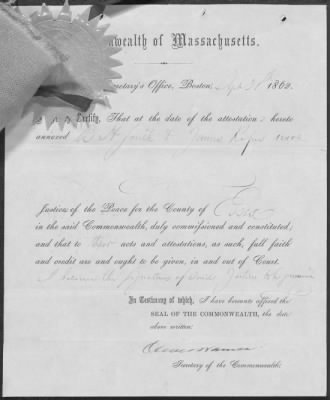 wealth of Massachusetts.
retary's Office, Boston, 1862.
Certify, That at the date of the attestation hereto
annexed James
Justice of the Peace for the County of Essex
in the said Commonwealth, duly commissioned and constituted;
and that to their acts and attestations, as such, full faith
and credit are and ought to be given, in and out of Court.
I the signature of said to be genuine
In Testimony of which, I have hereunto affixed the
SEAL OF THE COMMONWEALTH, the date
above written:
Oliver Warner
Secretary of the Commonwealth: